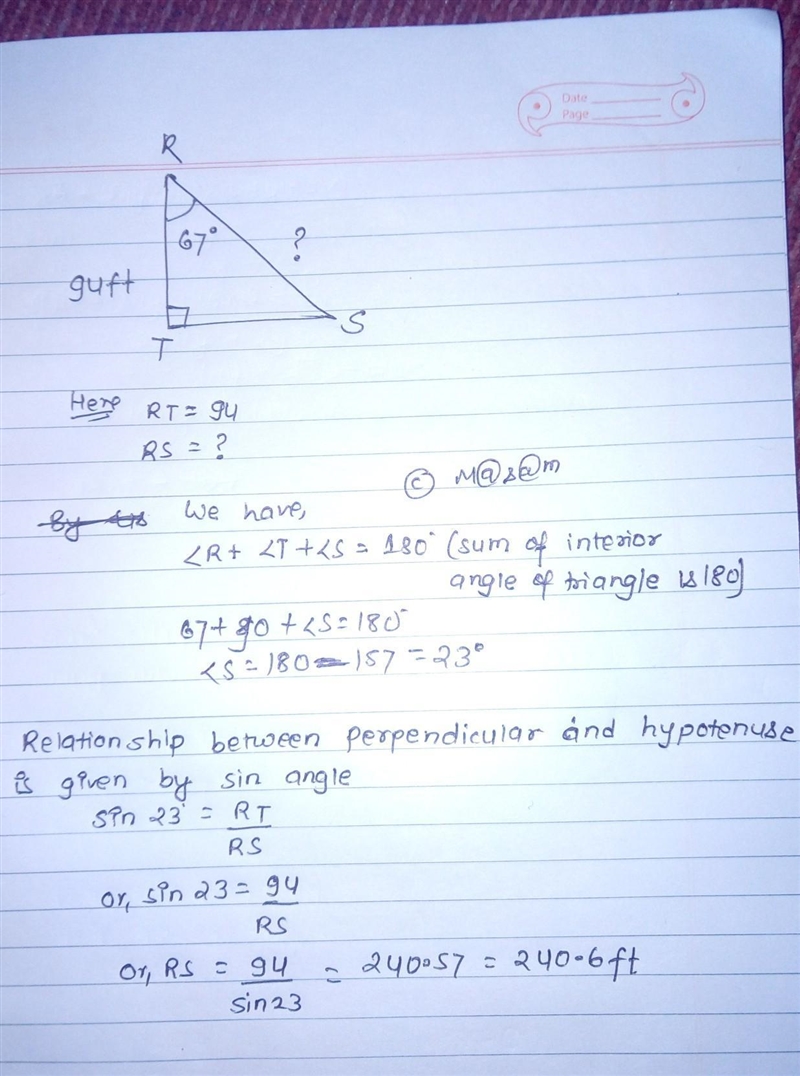 Date
Page
R
67°
?
94ft
T
S
Here RT = 94
RS = ?
© M@s@m
We have,
∠R + ∠T + ∠S = 180° (sum of interior
angle of triangle is 180)
67 + 90 + ∠S = 180°
∠S = 180 - 157 = 23°
Relationship between perpendicular and hypotenuse
is given by sin angle
sin 23° = RT
RS
or, sin 23 = 94
RS
Or, RS = 94 = 240.57 = 240.6 ft
sin 23